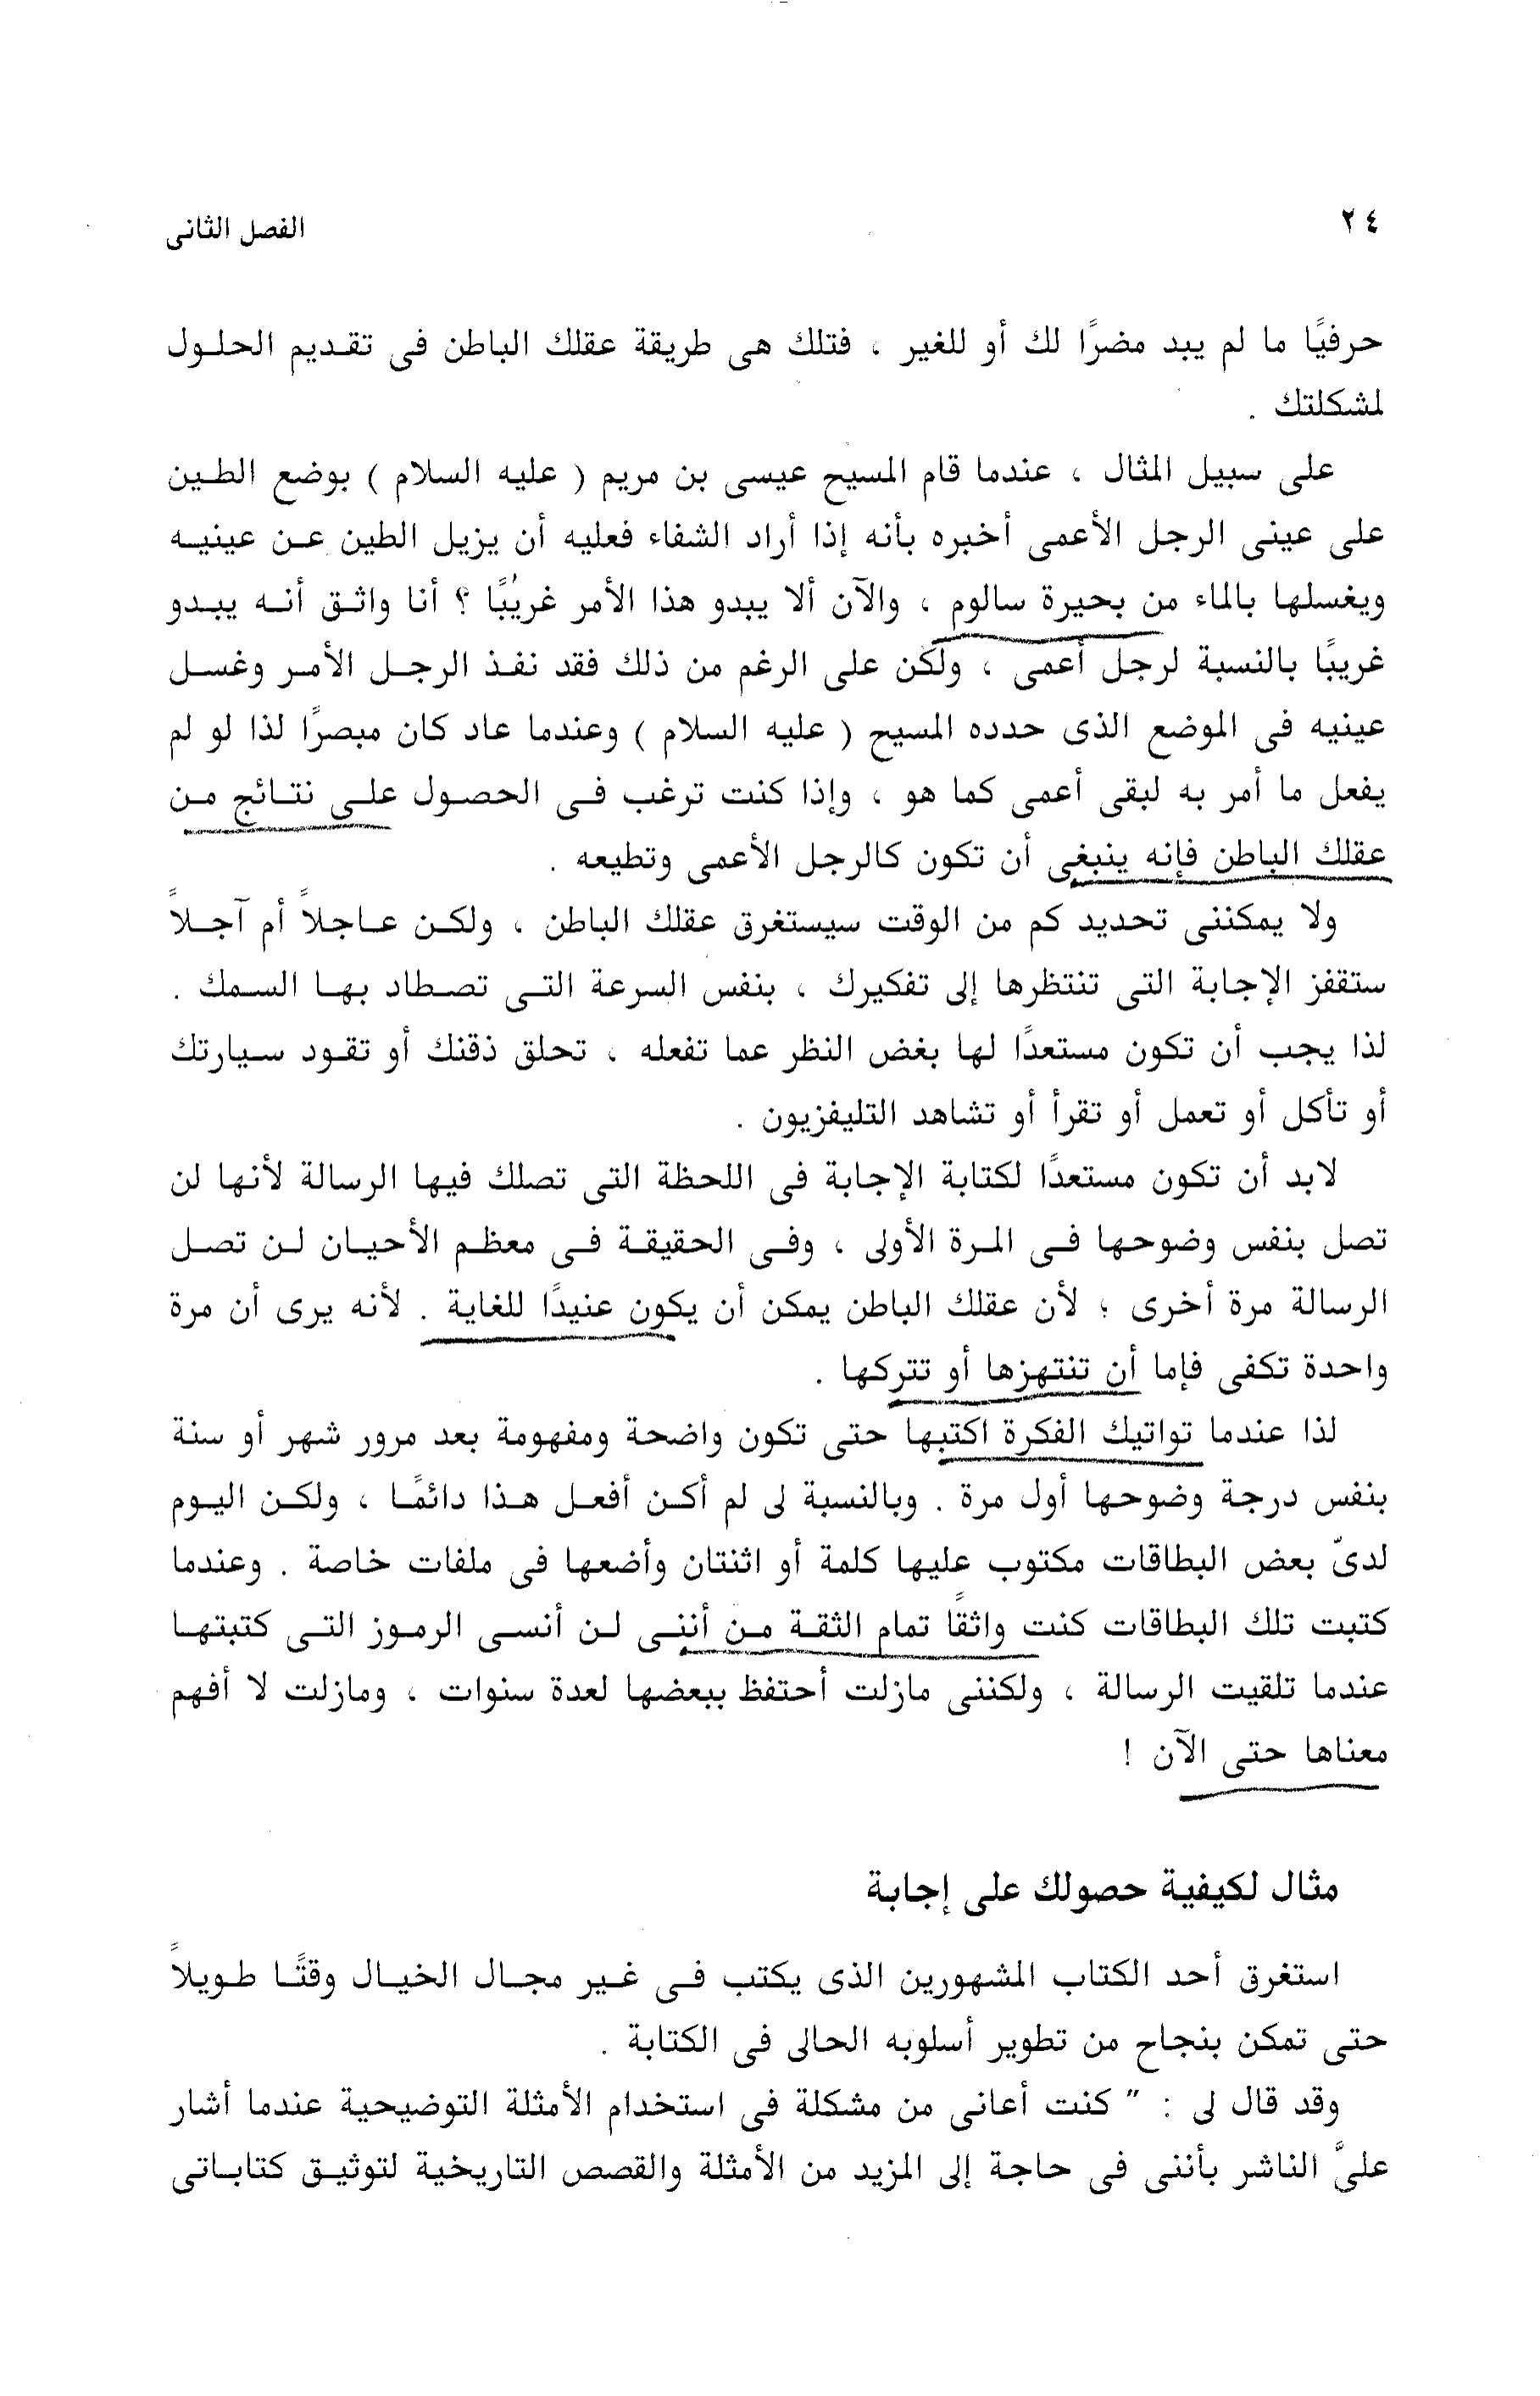 ٢٤
الفصل الثانى
حرفيًا ما لم يبد مضرًا لك أو للغير ، فتلك هى طريقة عقلك الباطن فى تقديم الحلول
لمشكلتك .
على سبيل المثال ، عندما قام المسيح عيسى بن مريم ( عليه السلام ) بوضع الطين
على عينى الرجل الأعمى أخبره بأنه إذا أراد الشفاء فعليه أن يزيل الطين عن عينيه
ويغسلها بالماء من بحيرة سالوم ، والآن ألا يبدو هذا الأمر غريبًا ؟ أنا واثق أنه يبدو
غريبًا بالنسبة لرجل أعمى ، ولكن على الرغم من ذلك فقد نفذ الرجل الأمر وغسل
عينيه فى الموضع الذى حدده المسيح ( عليه السلام ) وعندما عاد كان مبصرًا لذا لو لم
يفعل ما أمر به لبقى أعمى كما هو ، وإذا كنت ترغب فى الحصول على نتائج من
عقلك الباطن فإنه ينبغى أن تكون كالرجل الأعمى وتطيعه .
ولا يمكننى تحديد كم من الوقت سيستغرق عقلك الباطن ، ولكن عاجلاً أم آجلاً
ستقفز الإجابة التى تنتظرها إلى تفكيرك ، بنفس السرعة التى تصطاد بها السمك .
لذا يجب أن تكون مستعدًا لها بغض النظر عما تفعله ، تحلق ذقنك أو تقود سيارتك
أو تأكل أو تعمل أو تقرأ أو تشاهد التليفزيون .
لابد أن تكون مستعدًا لكتابة الإجابة فى اللحظة التى تصلك فيها الرسالة لأنها لن
تصل بنفس وضوحها فى المرة الأولى ، وفى الحقيقة فى معظم الأحيان لن تصل
الرسالة مرة أخرى ؛ لأن عقلك الباطن يمكن أن يكون عنيدًا للغاية . لأنه يرى أن مرة
واحدة تكفى فإما أن تنتهزها أو تتركها .
لذا عندما تواتيك الفكرة اكتبها حتى تكون واضحة ومفهومة بعد مرور شهر أو سنة
بنفس درجة وضوحها أول مرة . وبالنسبة لى لم أكن أفعل هذا دائمًا ، ولكن اليوم
لدىّ بعض البطاقات مكتوب عليها كلمة أو اثنتان وأضعها فى ملفات خاصة . وعندما
كتبت تلك البطاقات كنت واثقًا تمام الثقة من أننى لن أنسى الرموز التى كتبتها
عندما تلقيت الرسالة ، ولكننى مازلت أحتفظ ببعضها لعدة سنوات ، ومازلت لا أفهم
معناها حتى الآن !
مثال لكيفية حصولك على إجابة
استغرق أحد الكتاب المشهورين الذى يكتب فى غير مجال الخيال وقتًا طويلاً
حتى تمكن بنجاح من تطوير أسلوبه الحالى فى الكتابة .
وقد قال لى : " كنت أعانى من مشكلة فى استخدام الأمثلة التوضيحية عندما أشار
علىَّ الناشر بأننى فى حاجة إلى المزيد من الأمثلة والقصص التاريخية لتوثيق كتاباتى